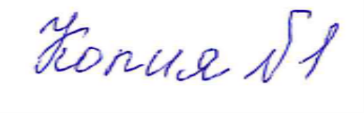 Копия №1